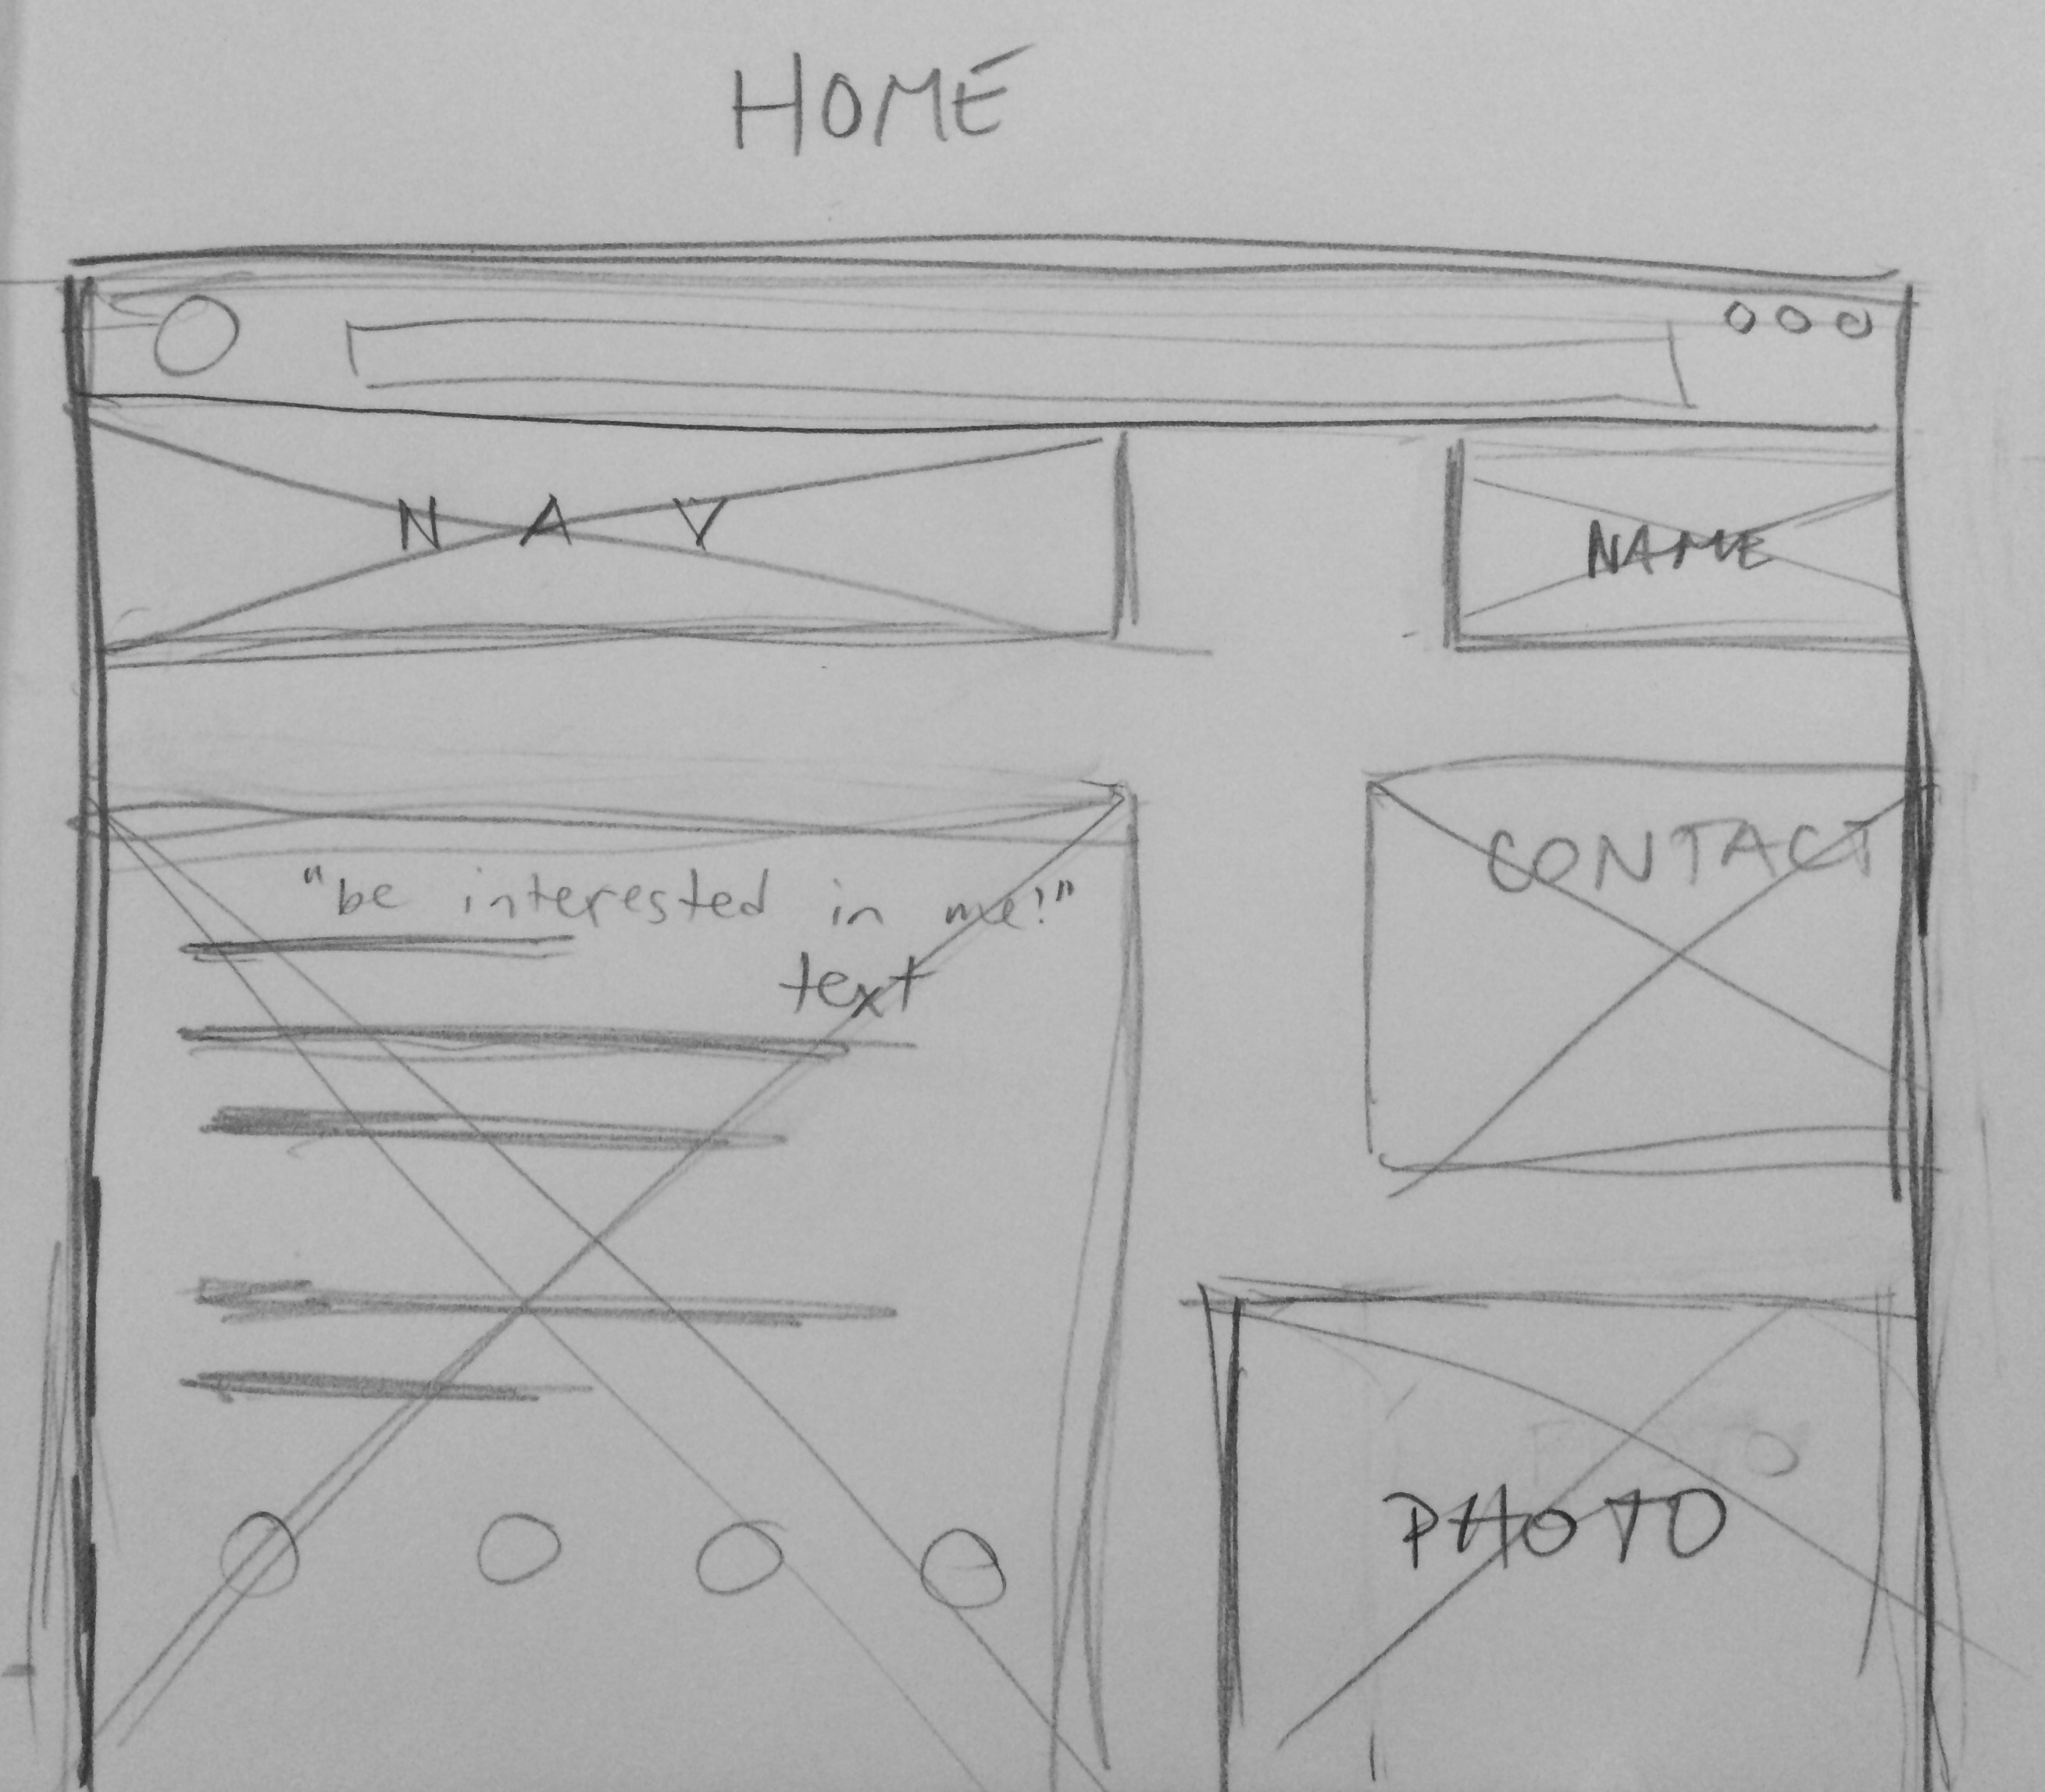 HOME
N A V
NAME
"be interested in me!"
text
CONTACT
PHOTO